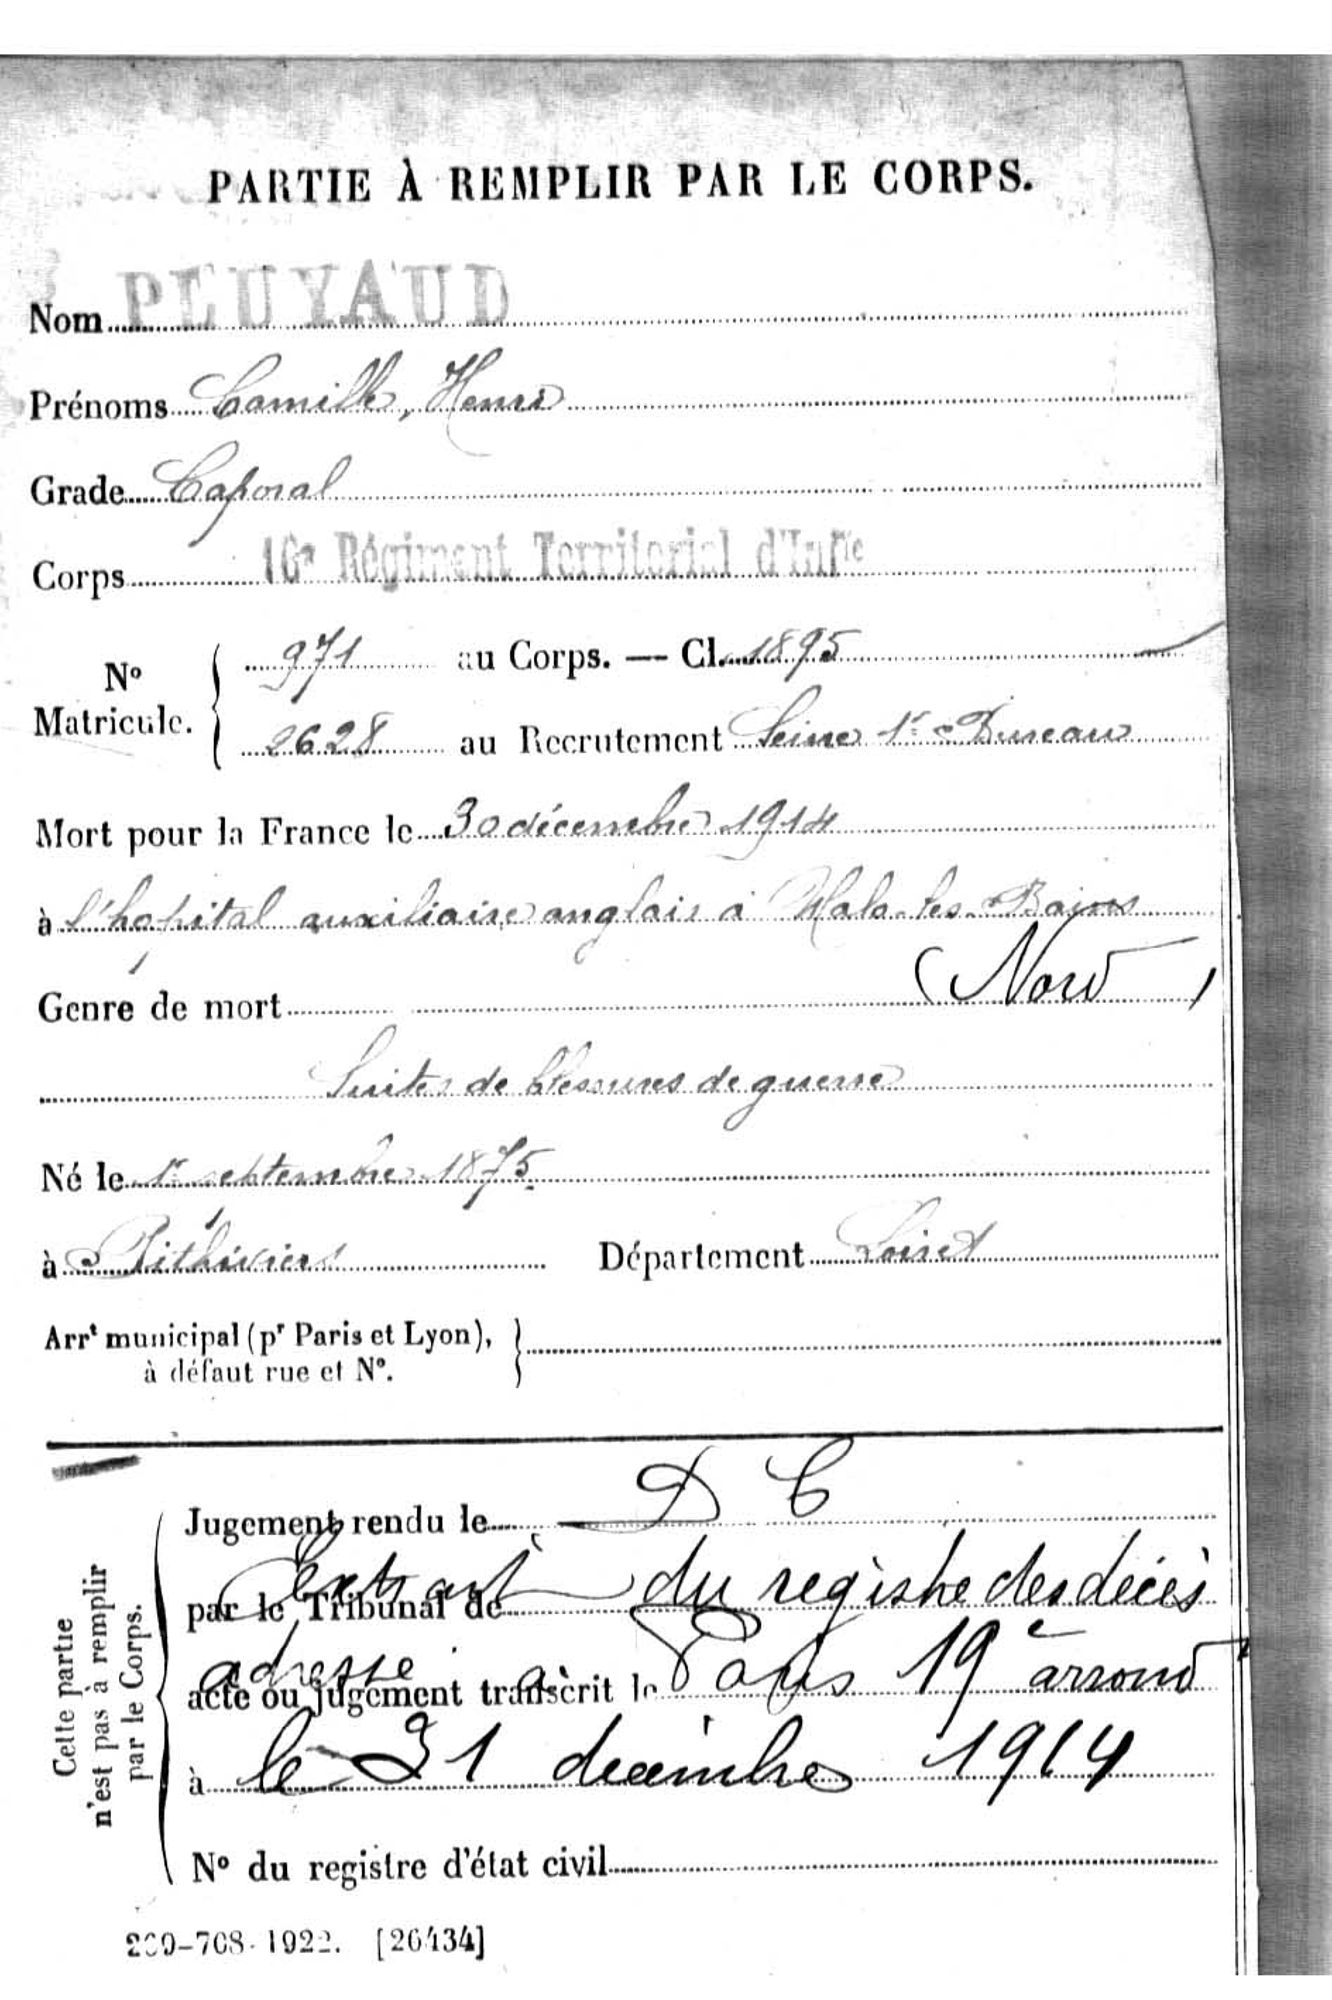 PARTIE À REMPLIR PAR LE CORPS.
Nom PEUYAUD
Prénoms Camille, Henri
Grade Caporal
Corps 16e Régiment Territorial d'Infie
No Matricule. 971 au Corps. — Cl. 1895
2628 au Recrutement Seine 1r Bureau
Mort pour la France le 30 décembre 1914
à l'hopital auxiliaire anglais à Malo-les-Bains
(Nord)
Genre de mort
Suites de blessures de guerre
Né le 1r septembre 1875.
à Pithiviers Département Loiret
Arrt municipal (pr Paris et Lyon),
à défaut rue et No.
Cette partie
n'est pas à remplir
par le Corps.
Jugement rendu le D C
par le Tribunal de
Extrait du registre des décès
acte ou jugement transcrit le
adressé à Paris 19e arrond
à le 31 decembre 1914
No du registre d'état civil
-708-1922. [26434]